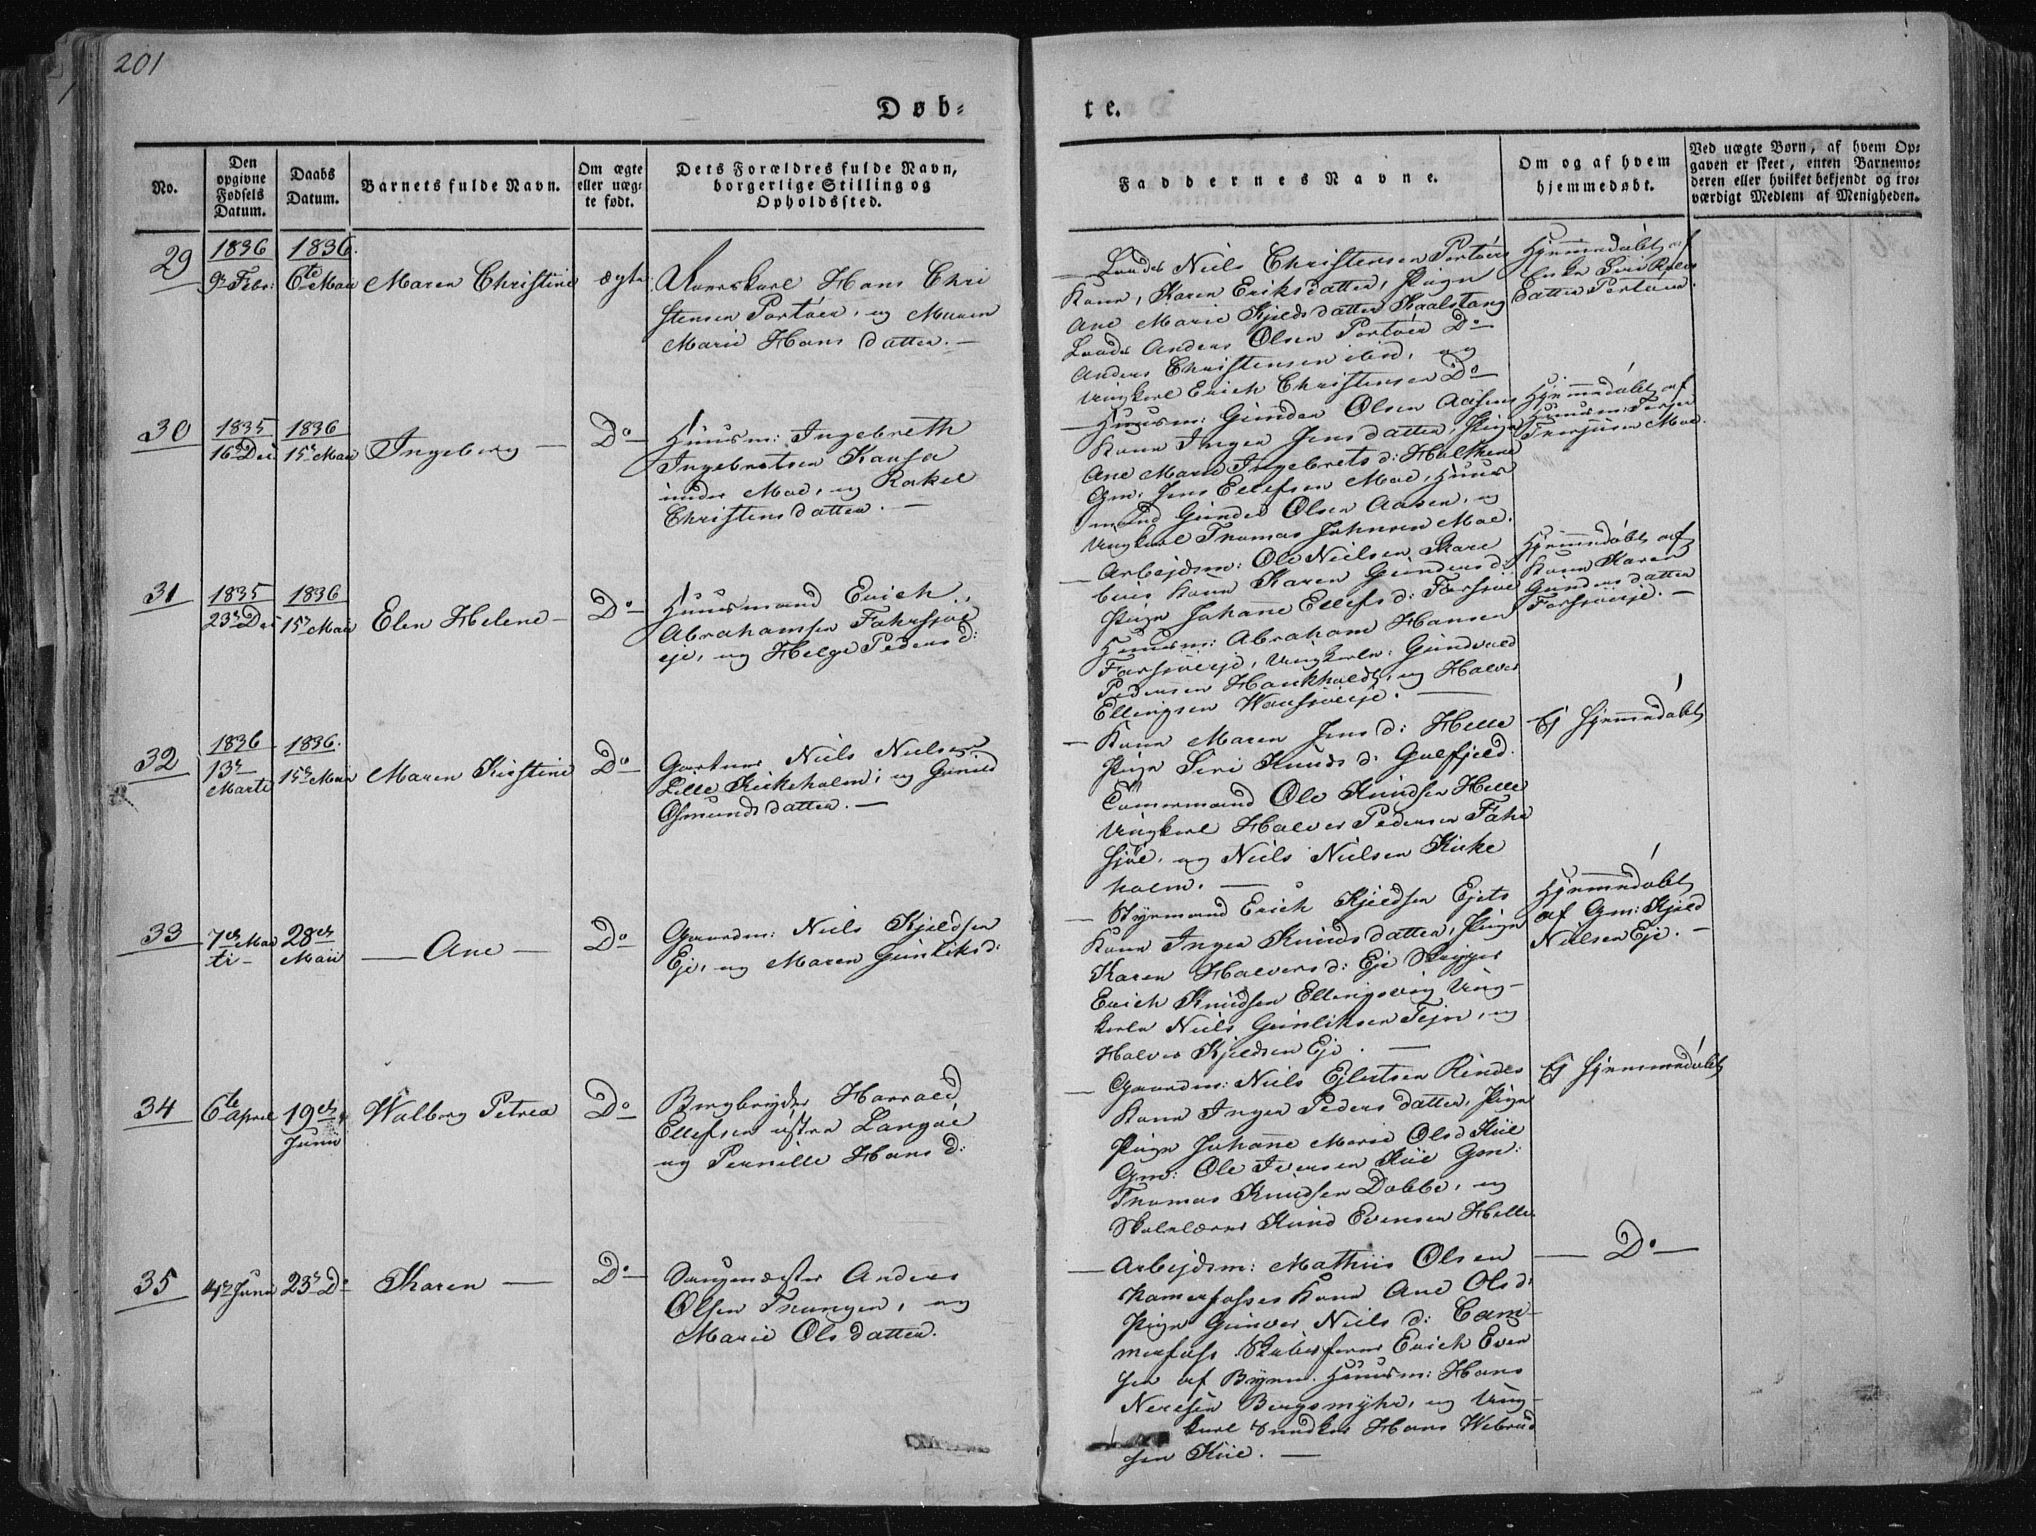 201
Døb-
te.
No.
Den opgivne Fødsels Datum.
Daabs Datum.
Barnets fulde Navn.
Om ægte eller uægte født.
Dets Forældres fulde Navn, borgerlige Stilling og Opholdssted.
Faddernes Navne.
Om og af hvem hjemmedøbt.
Ved uægte Børn, af hvem Opgaven er skeet, enten Barnemoderen eller hvilket bekjendt og troværdigt Medlem af Menigheden.
29
1836
9r Febr:
1836.
6te Maii
Maren Christine
ægte
Hans Chri
stensen Portöer, og Maren
Marie Hansdatter. —
— Lods Niels Christensen Portöers
Kone, Karen Eriksdatter, Pige
Ane Marie Kjeldsdatter Kaalstang
Lods Anders Olsen Portöer Do
Anders Christensen ibid, og
Ungkarl Erich Christensen Do
Hjemmedöbt af
Enke Siri
datter Portöer.
30
1835
16r Dec
1836
15r Maii
Ingeborg —
Do —
Huusm: Ingebreth
Ingebretsen Kaasa
under Moe, og Rakel
Christensdatter. —
— Huusm: Gunder Olsen Aasens
Kone Inger Jensdatter, Pige
Ane Marie Ingebretsd:
Gm: Jens Ellefsen Moe, Huus
mand Gunder Olsen Aasen, og
Ungkarl Thomas Johnsen Moe.
Hjemmedöbt af
Huusm: Terjer
Terjusen Moe.
31
1835
23r Dec
1836
15r Maii
Elen Helene —
Do —
Huusmand Erich
Abrahamsen Fahrsjöe
eje, og Helge Pedersd:
— Arbejdsm: Ole Nielsen Skare
Kone Karen Gundersd:
Pige Johane Ellefsd: Farsjöe
Huusm: Abraham Hansen
Farsjöeeje, Ungkarle: Gundvald
Pedersen Haukholdt, og Halvor
Ellingsen Farsjöeeje. —
Hjemmedöbt af
Kone Karen
Gundersdatter
Farsjöeeje. —
32
1836
13r
Marti
1836.
15r Maii
Maren Kirstine
Do
Gartner Niels Nielsen
Lille Kirkeholm, og Gunild
Osmundsdatter. —
— Kone Maren Jensd: Helle
Pige Siri Knudsd: Galfjeld.
Tömermand Ole Knudsen Helle
Ungkarl Halvor Pedersen Fahr
sjöe, og Niels Nielsen Kirke
holm. —
Ej hjemmedöbt
33
7de Mar
ti —
28de
Maii
— Ane —
Do
Gaardm: Niels Kjeldsen
Eje, og Maren Gunliksd:
— Styrmand Erich Kjeldsen Ejets
Kone Inger Knudsdatter, Pige
Karen Halvorsd: Eje Skipper
Erich Knudsen Ellingsvig Ung-
karle Niels Gunliksen Tejn, og
Halvor Kjeldsen Eje. —
Hjemmedöbt
af Gm: Kjeld
Nielsen Eje. —
34
6te April
19de
Junii
Walborg Petrea
Do
Bergbryder Harrald
Ellefsen østre Langöe
og Pernille Hansd:
— Gaardm: Niels Ejlertsen Rindes
Kone Inger Pedersdatter, Pige
Pige Johane Marie Olsd Kiil
Gm: Ole Iversen Kiil Gm:
Thomas Knudsen Dobbe, og
Skolelærer Knud Evensen Helle.
Ej hjemmedöbt
35
4r Junii
23r Do
Karen —
Do —
Saugmester Anders
Olsen Tangen, og
Marie Olsdatter.
— Arbejdsm: Mathiis Olsen
Kamerfosses Kone Ane Olsd:
Pige Gunver Nielsd: Cam-
merfoss Erich Even
sen af Byen. Huusm: Hans
Neresen Bergsmyhr, og Ung-
karl Hans
sen Kiil. —
— Do —